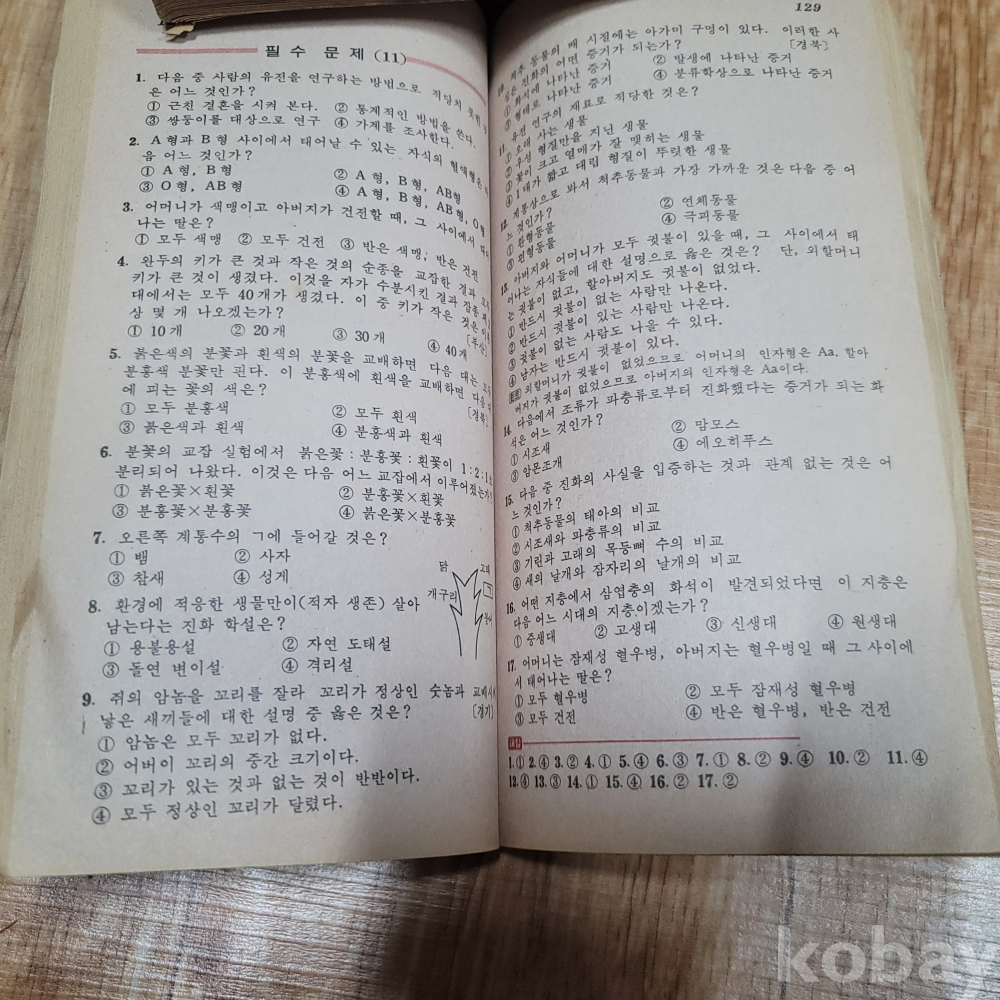 필수 문제 (11)
1. 다음 중 사람의 유전을 연구하는 방법으로 적당치 못한
은 어느 것인가?
① 근친 결혼을 시켜 본다. ② 통계적인 방법을 쓴다.
③ 쌍둥이를 대상으로 연구 ④ 가계를 조사한다.
2. A형과 B형 사이에서 태어날 수 있는 자식의 혈액형은
음 어느 것인가?
① A형, B형 ② A형, B형, AB형
③ O형, AB형 ④ A형, B형, AB형, O형
3. 어머니가 색맹이고 아버지가 건전할 때, 그 사이에서
나는 딸은?
① 모두 색맹 ② 모두 건전 ③ 반은 색맹, 반은 건전
4. 완두의 키가 큰 것과 작은 것의 순종을 교잡한 결과
키가 큰 것이 생겼다. 이것을 자가 수분시킨 결과 잡종
대에서는 모두 40개가 생겼다. 이 중 키가 작은 것은
상 몇 개 나오겠는가? [부산]
① 10개 ② 20개 ③ 30개 ④ 40개
5. 붉은색의 분꽃과 흰색의 분꽃을 교배하면 다음 대는
분홍색 분꽃만 핀다. 이 분홍색에 흰색을 교배하면 다음
에 피는 꽃의 색은? [경북]
① 모두 분홍색 ② 모두 흰색
③ 붉은색과 흰색 ④ 분홍색과 흰색
6. 분꽃의 교잡 실험에서 붉은꽃 : 분홍꽃 : 흰꽃이 1:2:1로
분리되어 나왔다. 이것은 다음 어느 교잡에서 이루어졌는가?
① 붉은꽃×흰꽃 ② 분홍꽃×흰꽃
③ 분홍꽃×분홍꽃 ④ 붉은꽃×분홍꽃
7. 오른쪽 계통수의 ㄱ에 들어갈 것은?
① 뱀 ② 사자
③ 참새 ④ 성게
닭
개구리
ㄱ
8. 환경에 적응한 생물만이(적자 생존) 살아
남는다는 진화 학설은?
① 용불용설 ② 자연 도태설
③ 돌연 변이설 ④ 격리설
9. 쥐의 암놈을 꼬리를 잘라 꼬리가 정상인 숫놈과
낳은 새끼들에 대한 설명 중 옳은 것은? [경기]
① 암놈은 모두 꼬리가 없다.
② 어버이 꼬리의 중간 크기이다.
③ 꼬리가 있는 것과 없는 것이 반반이다.
④ 모두 정상인 꼬리가 달렸다.
129
10. 척추 동물의 배 시절에는 아가미 구멍이 있다. 이러한 사
실은 진화의 어떤 증거가 되는가? [경북]
① 화석에 나타난 증거 ② 발생에 나타난 증거
③ 형태로 나타난 증거 ④ 분류학상으로 나타난 증거
11. 유전 연구의 재료로 적당한 것은?
① 오래 사는 생물
② 우성 형질만을 지닌 생물
③ 꽃이 크고 열매가 잘 맺히는 생물
④ 1대가 짧고 대립 형질이 뚜렷한 생물
12. 계통상으로 봐서 척추동물과 가장 가까운 것은 다음 중 어
느 것인가?
① 환형동물 ② 연체동물
③ 편형동물 ④ 극피동물
13. 아버지와 어머니가 모두 귓불이 있을 때, 그 사이에서 태
어나는 자식들에 대한 설명으로 옳은 것은? 단, 외할머니
는 귓불이 없고, 할아버지도 귓불이 없었다.
① 반드시 귓불이 없는 사람만 나온다.
② 반드시 귓불이 있는 사람만 나온다.
③ 귓불이 없는 사람도 나올 수 있다.
④ 남자는 반드시 귓불이 있다.
외할머니가 귓불이 없었으므로 어머니의 인자형은 Aa, 할아
버지가 귓불이 없었으므로 아버지의 인자형은 Aa이다.
14. 다음에서 조류가 파충류로부터 진화했다는 증거가 되는 화
석은 어느 것인가?
① 시조새 ② 맘모스
③ 암몬조개 ④ 에오히푸스
15. 다음 중 진화의 사실을 입증하는 것과 관계 없는 것은 어
느 것인가?
① 척추동물의 태아의 비교
② 시조새와 파충류의 비교
③ 기린과 고래의 목등뼈 수의 비교
④ 새의 날개와 잠자리의 날개의 비교
16. 어떤 지층에서 삼엽충의 화석이 발견되었다면 이 지층은
다음 어느 시대의 지층이겠는가?
① 중생대 ② 고생대 ③ 신생대 ④ 원생대
17. 어머니는 잠재성 혈우병, 아버지는 혈우병일 때 그 사이에
서 태어나는 딸은?
① 모두 혈우병 ② 모두 잠재성 혈우병
③ 모두 건전 ④ 반은 혈우병, 반은 건전
1.① 2.④ 3.② 4.① 5.④ 6.③ 7.① 8.② 9.④ 10.② 11.④
12.④ 13.③ 14.① 15.④ 16.② 17.②
kobay